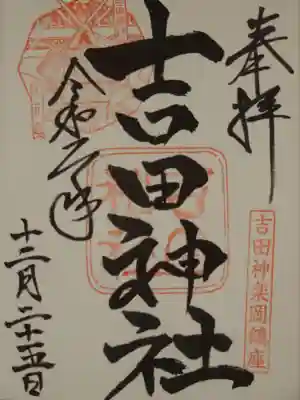 奉拝
吉田神楽岡鎮座
吉田神社
令和二年
十二月二十五日